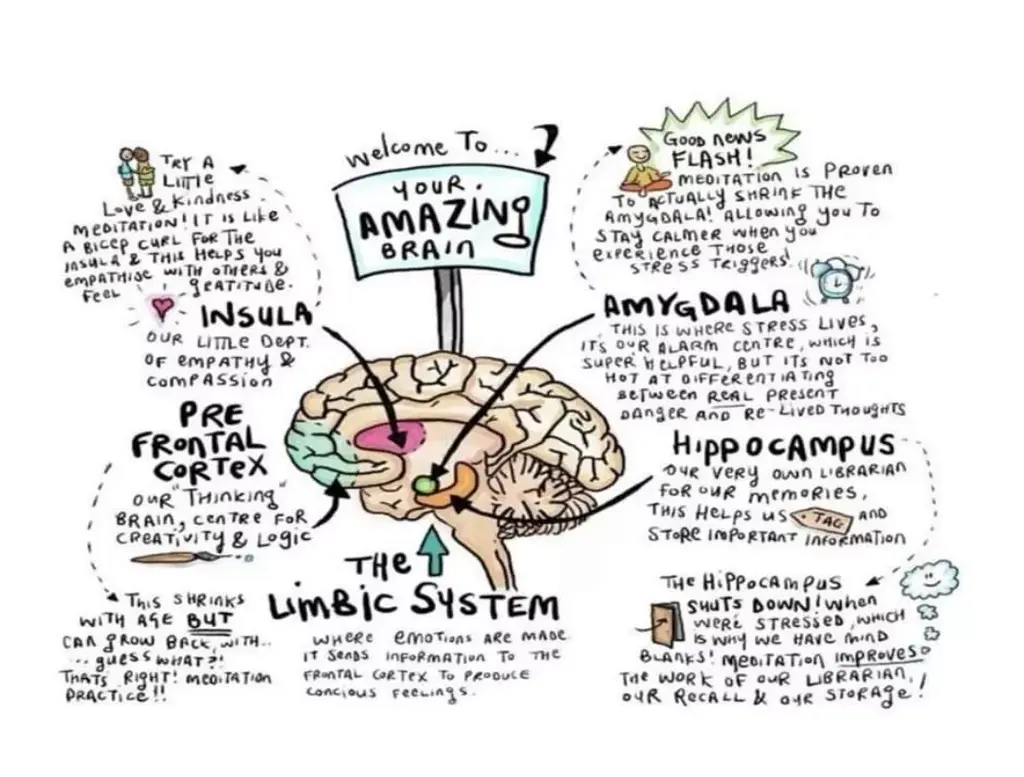 WELCOME TO...
YOUR
AMAZING
BRAIN
TRY A
LITTLE
LOVE & KINDNESS
MEDITATION! IT IS LIKE
A BICEP CURL FOR THE
INSULA & THIS HELPS YOU
EMPATHISE WITH OTHERS &
FEEL GRATITUDE.
INSULA
OUR LITTLE DEPT.
OF EMPATHY &
COMPASSION
PRE
FRONTAL
CORTEX
OUR "THINKING"
BRAIN, CENTRE FOR
CREATIVITY & LOGIC
THIS SHRINKS
WITH AGE BUT
CAN GROW BACK, WITH...
...GUESS WHAT?!
THATS RIGHT! MEDITATION
PRACTICE!!
THE
LIMBIC SYSTEM
WHERE EMOTIONS ARE MADE.
IT SENDS INFORMATION TO THE
FRONTAL CORTEX TO PRODUCE
CONCIOUS FEELINGS.
GOOD NEWS
FLASH!
MEDITATION IS PROVEN
TO ACTUALLY SHRINK THE
AMYGDALA! ALLOWING YOU TO
STAY CALMER WHEN YOU
EXPERIENCE THOSE
STRESS TRIGGERS!
AMYGDALA
THIS IS WHERE STRESS LIVES,
IT'S OUR ALARM CENTRE, WHICH IS
SUPER HELPFUL, BUT ITS NOT TOO
HOT AT DIFFERENTIATING
BETWEEN REAL PRESENT
DANGER AND RE-LIVED THOUGHTS
HIPPOCAMPUS
OUR VERY OWN LIBRARIAN
FOR OUR MEMORIES,
THIS HELPS US TAG AND
STORE IMPORTANT INFORMATION
THE HIPPOCAMPUS
SHUTS DOWN! WHEN
WERE STRESSED, WHICH
IS WHY WE HAVE MIND
BLANKS! MEDITATION IMPROVES
THE WORK OF OUR LIBRARIAN,
OUR RECALL & OUR STORAGE!